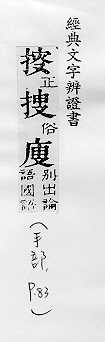 經典文字辨證書
正
搜俗
廋別出論
語國語
(手部, P.83)